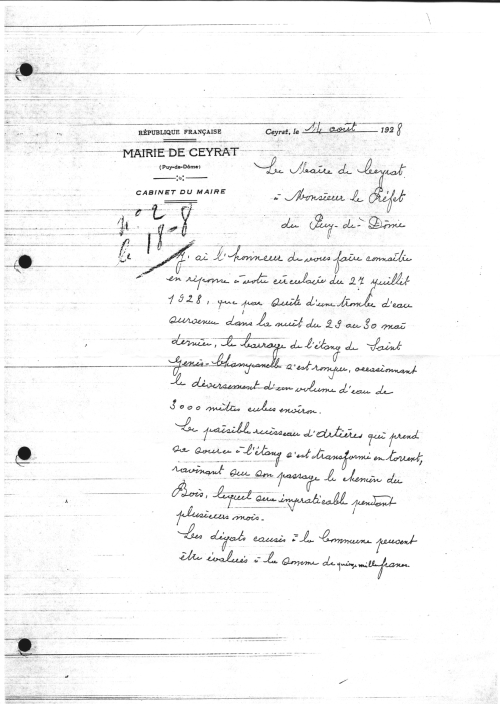 RÉPUBLIQUE FRANÇAISE
MAIRIE DE CEYRAT
(Puy-de-Dôme)
CABINET DU MAIRE
Ceyrat, le 14 août 1928
n° 2
le 18-8
Le Maire de Ceyrat
à Monsieur le Préfet
du Puy-de-Dôme
J'ai l'honneur de vous faire connaître
en réponse à votre circulaire du 27 juillet
1928, que par suite d'une trombe d'eau
survenue dans la nuit du 29 au 30 mai
dernier, le barrage de l'étang de Saint
Genès-Champanelle s'est rompu, occasionnant
le déversement d'un volume d'eau de
3000 mètres cubes environ.
Le paisible ruisseau d'Artières qui prend
sa source à l'étang s'est transformé en torrent,
ravinant sur son passage le chemin du
Bois, lequel sera impraticable pendant
plusieurs mois.
Les dégats causés à la Commune peuvent
être évalués à la somme de quinze mille francs